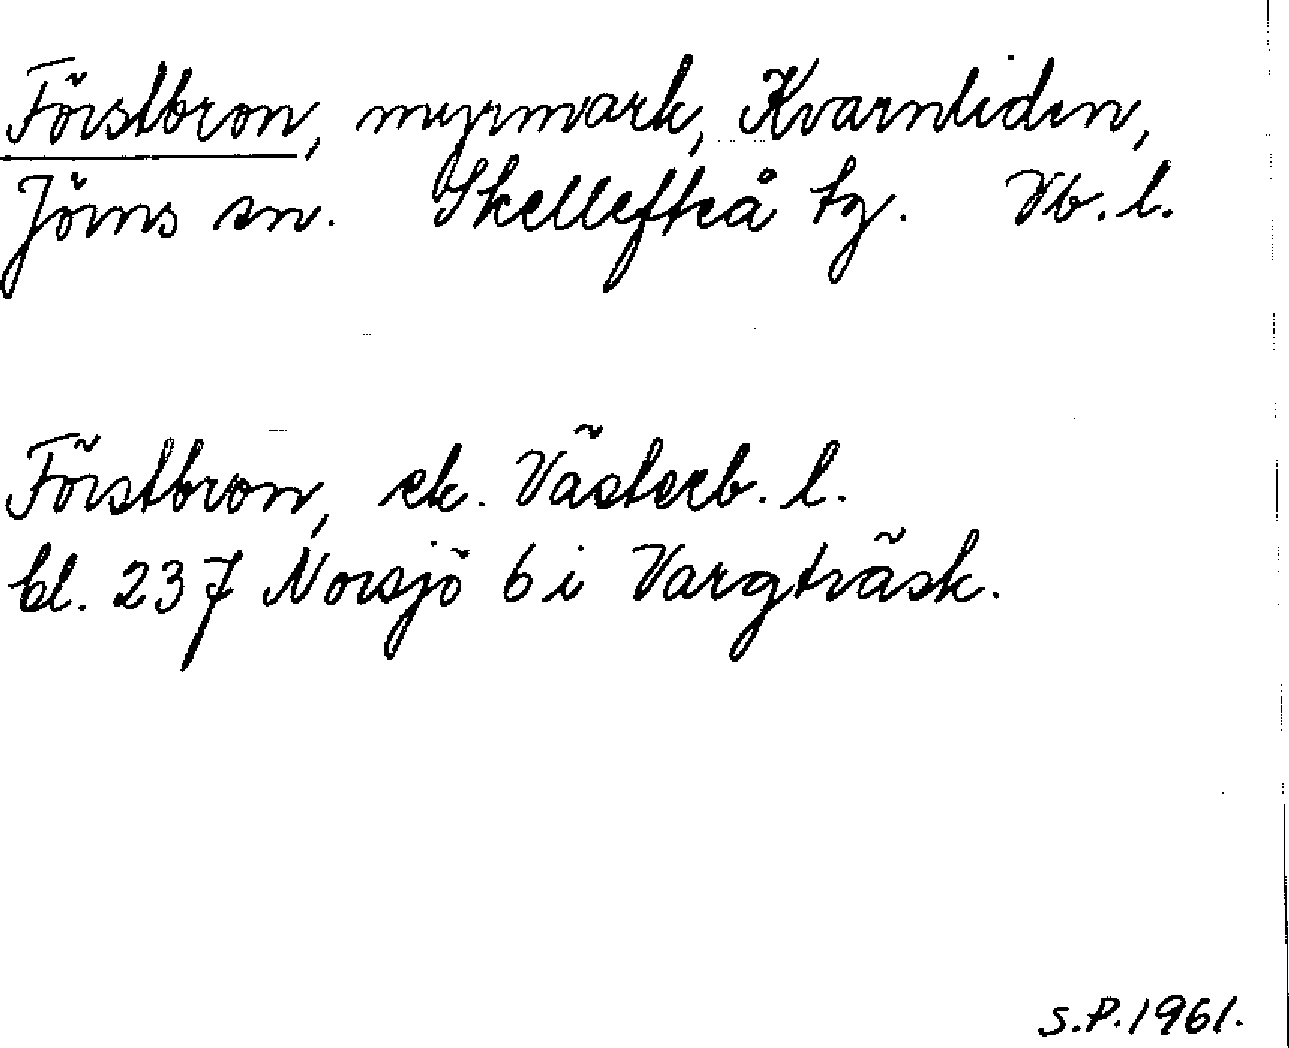 Förstbron, myrmark, Kvarnliden,
Jörns sn. Skellefteå tg. Vb. l.
Förstbron, ek. Västerb. l.
bl. 237 Norsjö 6 i Vargträsk.
S.P. 1961.